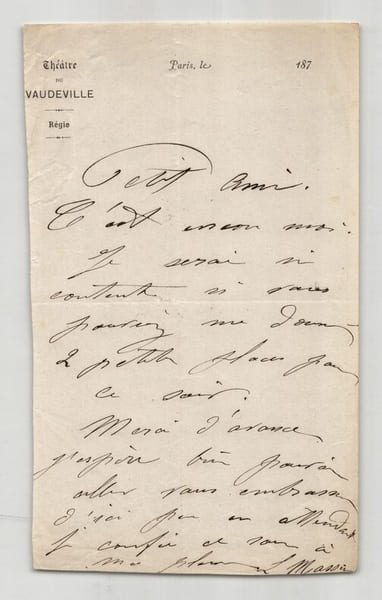 Théâtre
DU
VAUDEVILLE
Régie
Paris, le 187
Petit ami.
C'est encore moi.
Je serai si
contente si vous
pouviez me donner
2 petites places pour
ce soir.
Merci d'avance
j'espère bien pouvoir
aller vous embrasser
d'ici peu en attendant
je confie ce soin à
ma plume